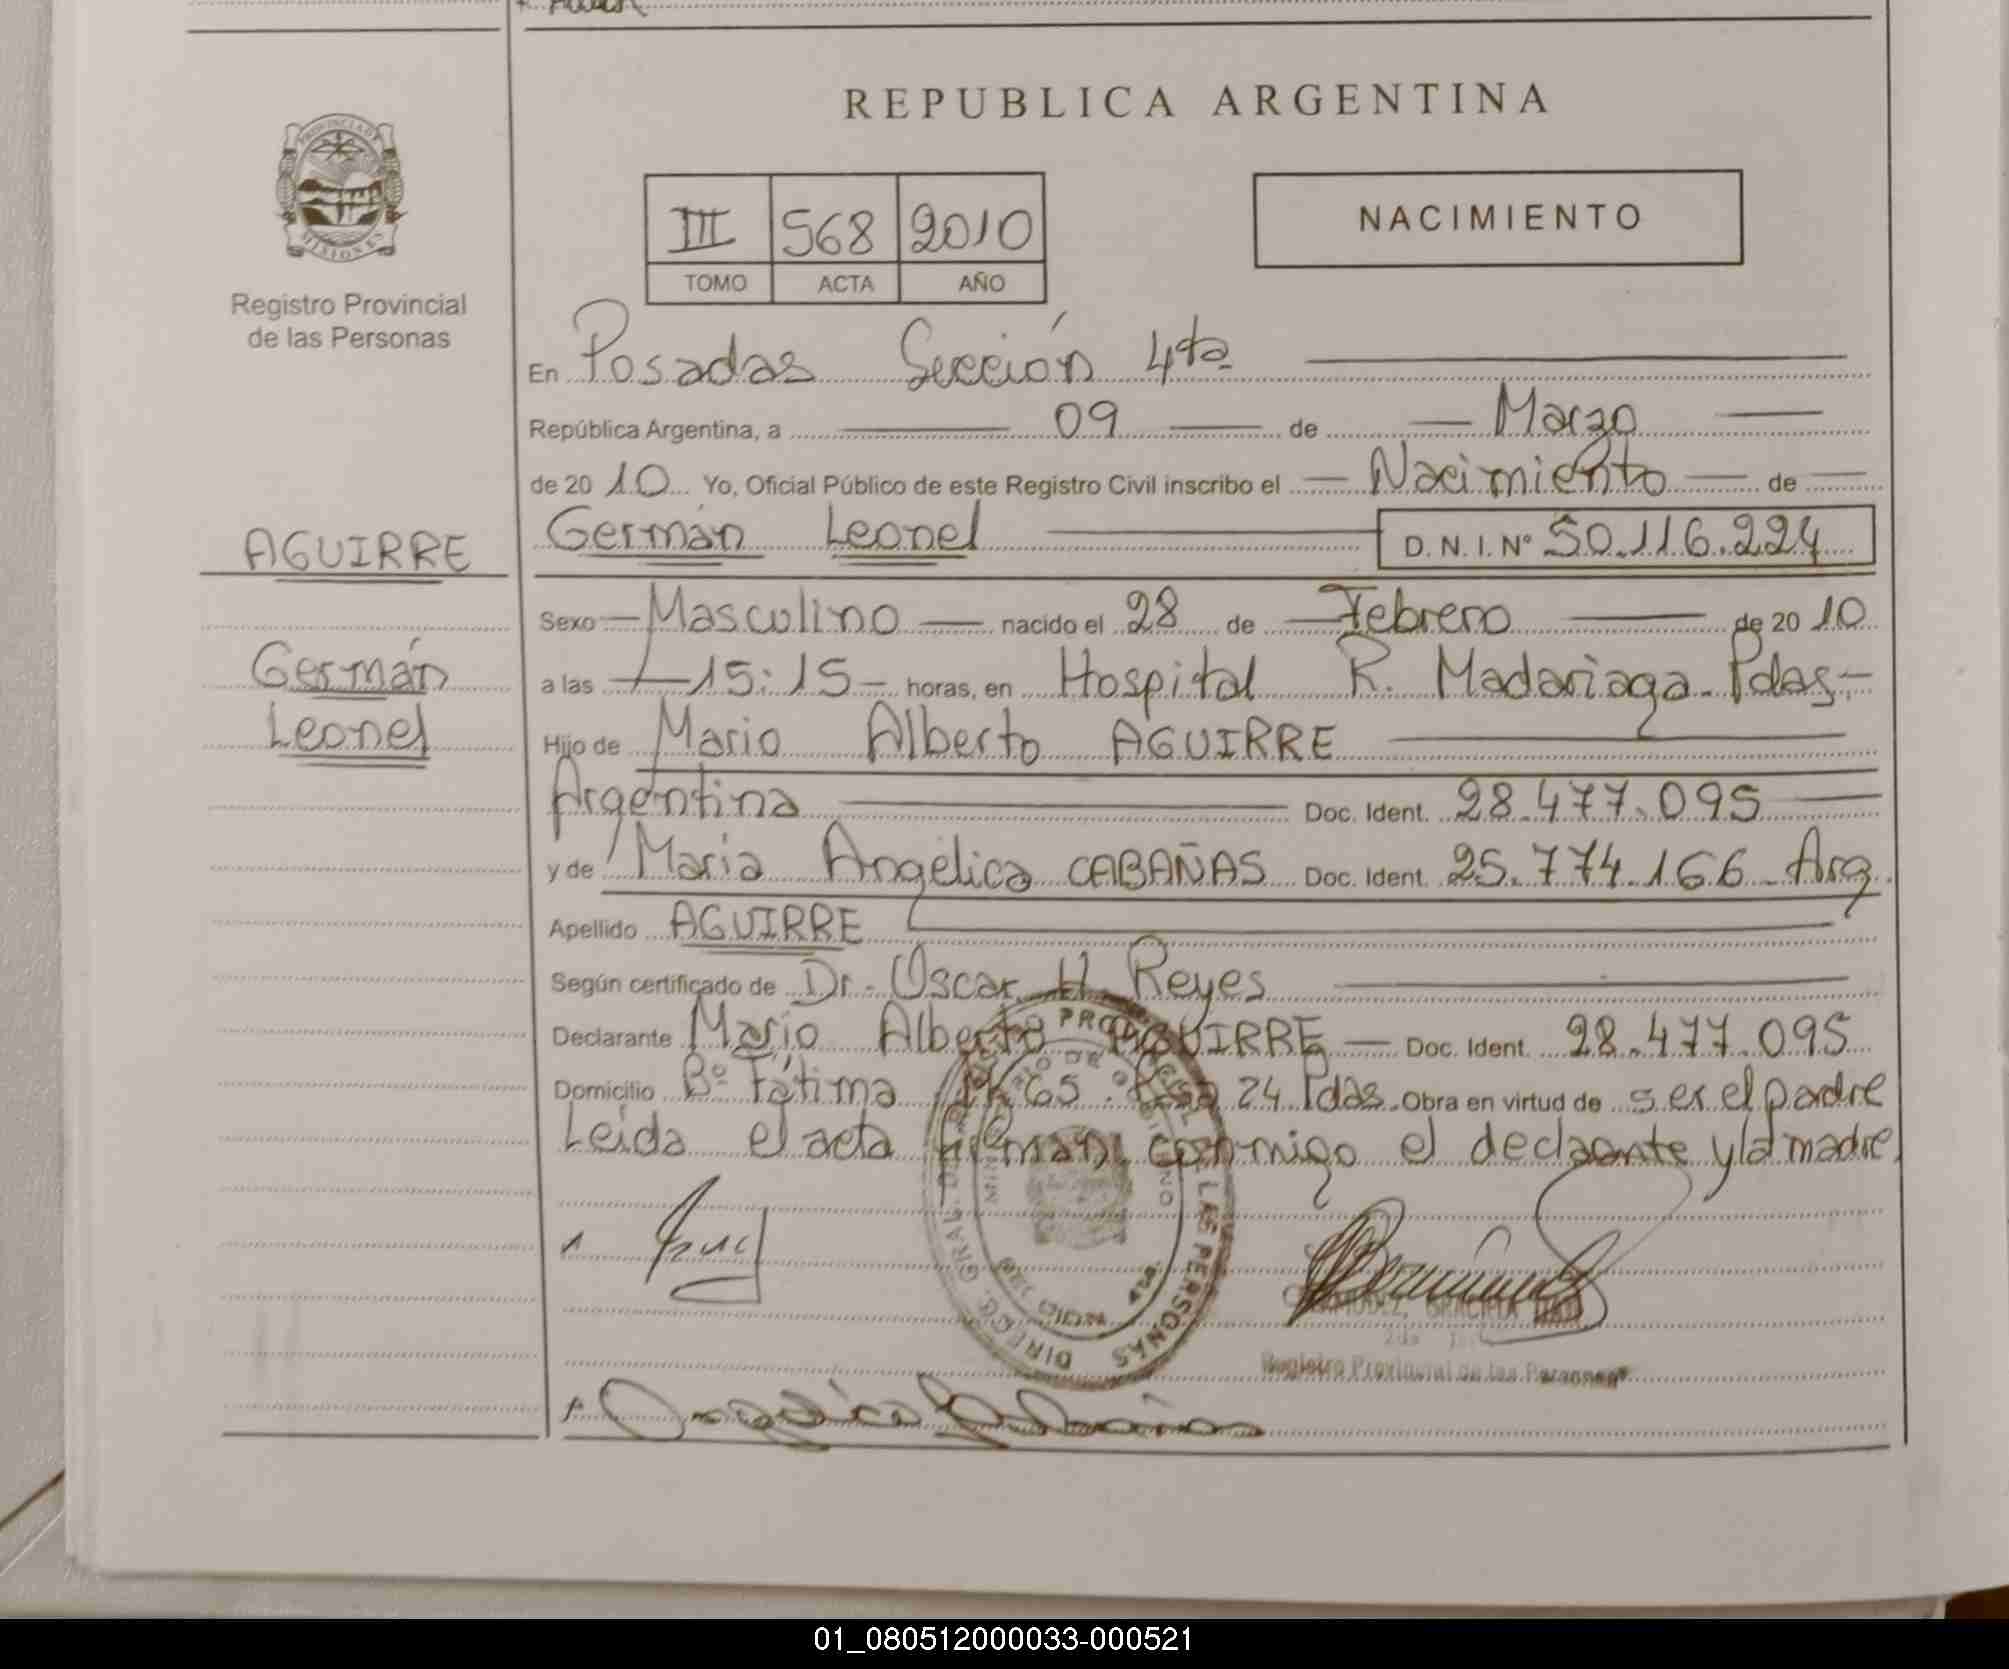 REPUBLICA ARGENTINA
PROVINCIA DE
MISIONES
Registro Provincial
de las Personas
III 568 2010
TOMO ACTA AÑO
NACIMIENTO
En Posadas Sección 4ta
República Argentina, a 09 de Marzo
de 2010 Yo, Oficial Público de este Registro Civil inscribo el Nacimiento de
AGUIRRE
Germán Leonel D.N.I.Nº 50.116.224
Sexo Masculino nacido el 28 de Febrero de 2010
Germán
a las 15:15 horas, en Hospital R. Madariaga - Pdas-
Leonel
Hijo de Mario Alberto AGUIRRE
Argentina Doc. Ident. 28.477.095
y de Maria Angélica CABAÑAS Doc. Ident. 25.774.166 - Arg.
Apellido AGUIRRE
Según certificado de Dr. Oscar H. Reyes
Declarante Mario Alberto AGUIRRE Doc. Ident. 28.477.095
Domicilio Bº Fátima 65 24 Pdas. Obra en virtud de ser el padre
Leida el acta firman conmigo el declaante y la madre.
DIRECC. GRAL. LAS PERSONAS
Registro Provincial de las Personas
01_080512000033-000521